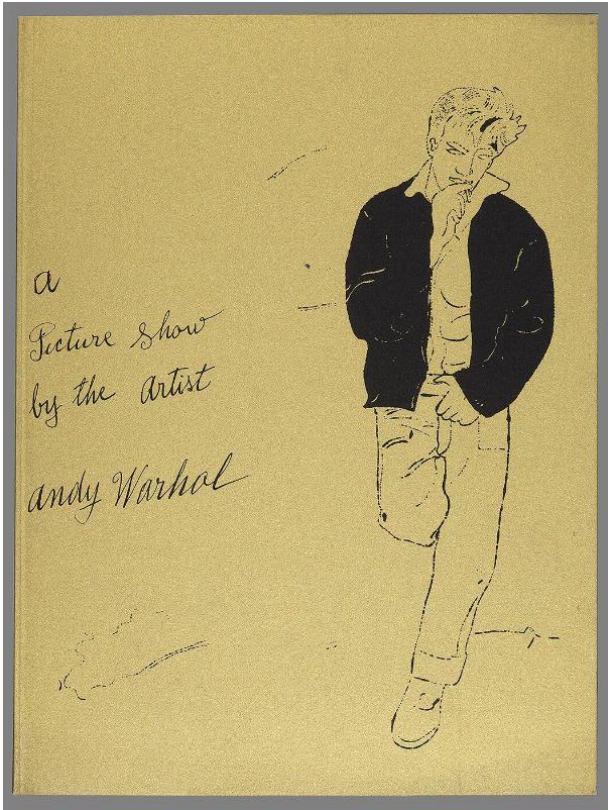 a
Picture show
by the artist
andy Warhol